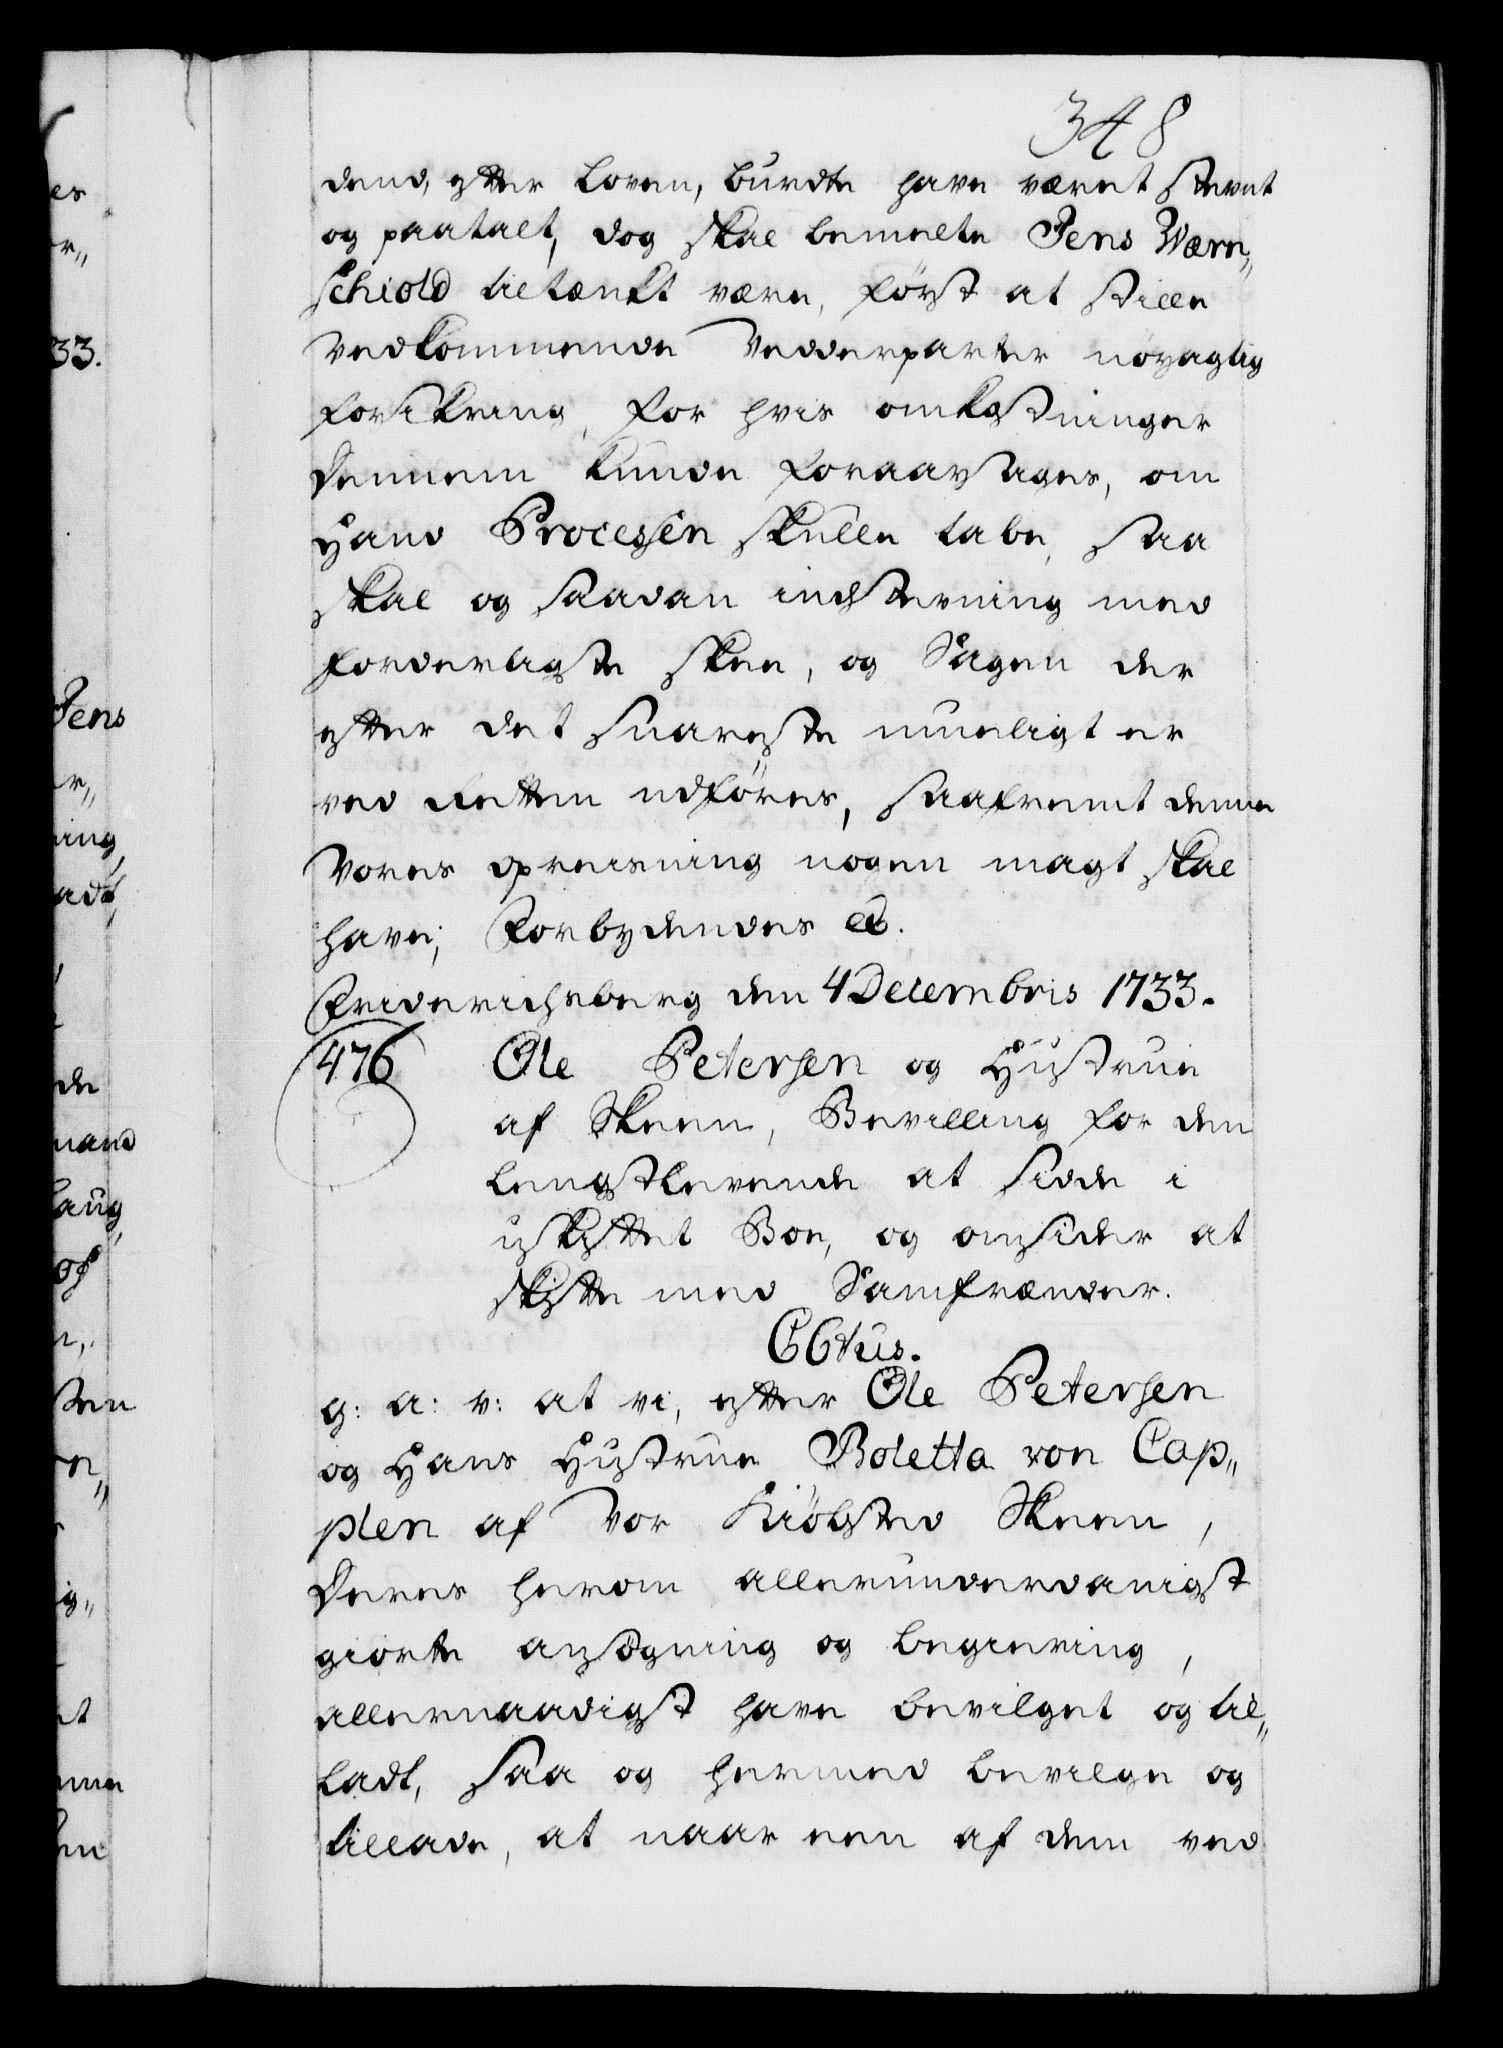 348
dend, efter Loven, burdte have været stevnt
og paatalt, dog skal bemelte Jens Wærn„
schiold tiltænkt være, først at stille
Vedkommende Vedderparter nöyagtig
forsikring, for hvis omkostninger
Dennem kunde foraarsages, om
Hand Processen skulle tabe, saa
skal og saadan indstevning med
forderligste skee, og Sagen der
efter det snareste mueligt er
ved Retten udföres, saafremt denne
Vores opreisning nogen magt skal
have; Forbydendes &c.
Friderichsberg den 4 Decembris 1733.
476 Ole Petersen og Hustrue
af Skeen, Bevilling for den
lengstlevende at sidde i
uskiftet Boe, og omsider at
skifte med Samfrænder.
C6tus.
g: a: v: at vi, efter Ole Petersen
og Hans Hustrue Boletta von Cap„
plen af Vor Kiöbsted Skeen,
Deres herom allerunderdanigst
giorte ansögning og begiering,
allernaadigst have bevilget og til„
ladt, saa og hermed bevilge og
tillade, at naar een af dem ved
es
or„
33.
Jens
r„
ning,
adt,
de
mand
Laug,
og
n„
sten
en„
ig„
et